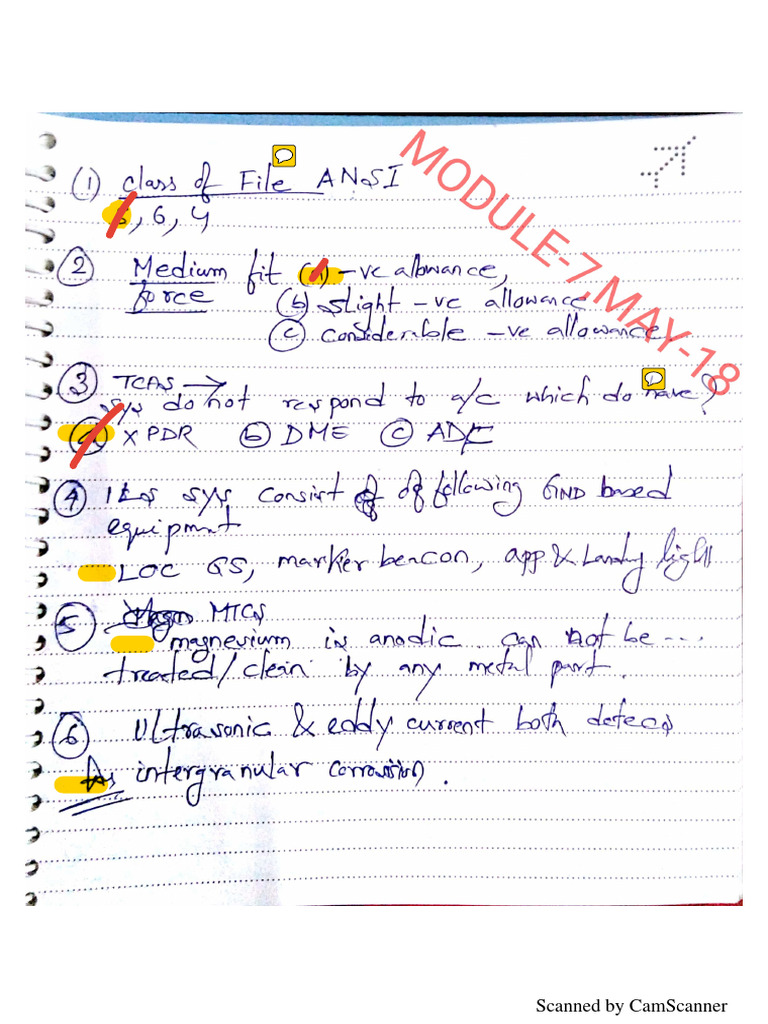 MODULE-7,MAY-18
(1) Class of File ANSI
, 6, 4
(2) Medium fit (a) -ve allowance,
force (b) slight -ve allowance
(c) considerable -ve allowance.
(3) TCAS →
sys do not respond to a/c which do have?
(a) XPDR (b) DME (c) ADF
(4) ILS sys consist of following GND based
equipment
LOC GS, marker beacon, app & Landing light
(5) MTCS
magnesium is anodic. can not be ...
treated/clean by any metal part.
(6) Ultrasonic & eddy current both detects
As intergranular corrosion.
Scanned by CamScanner